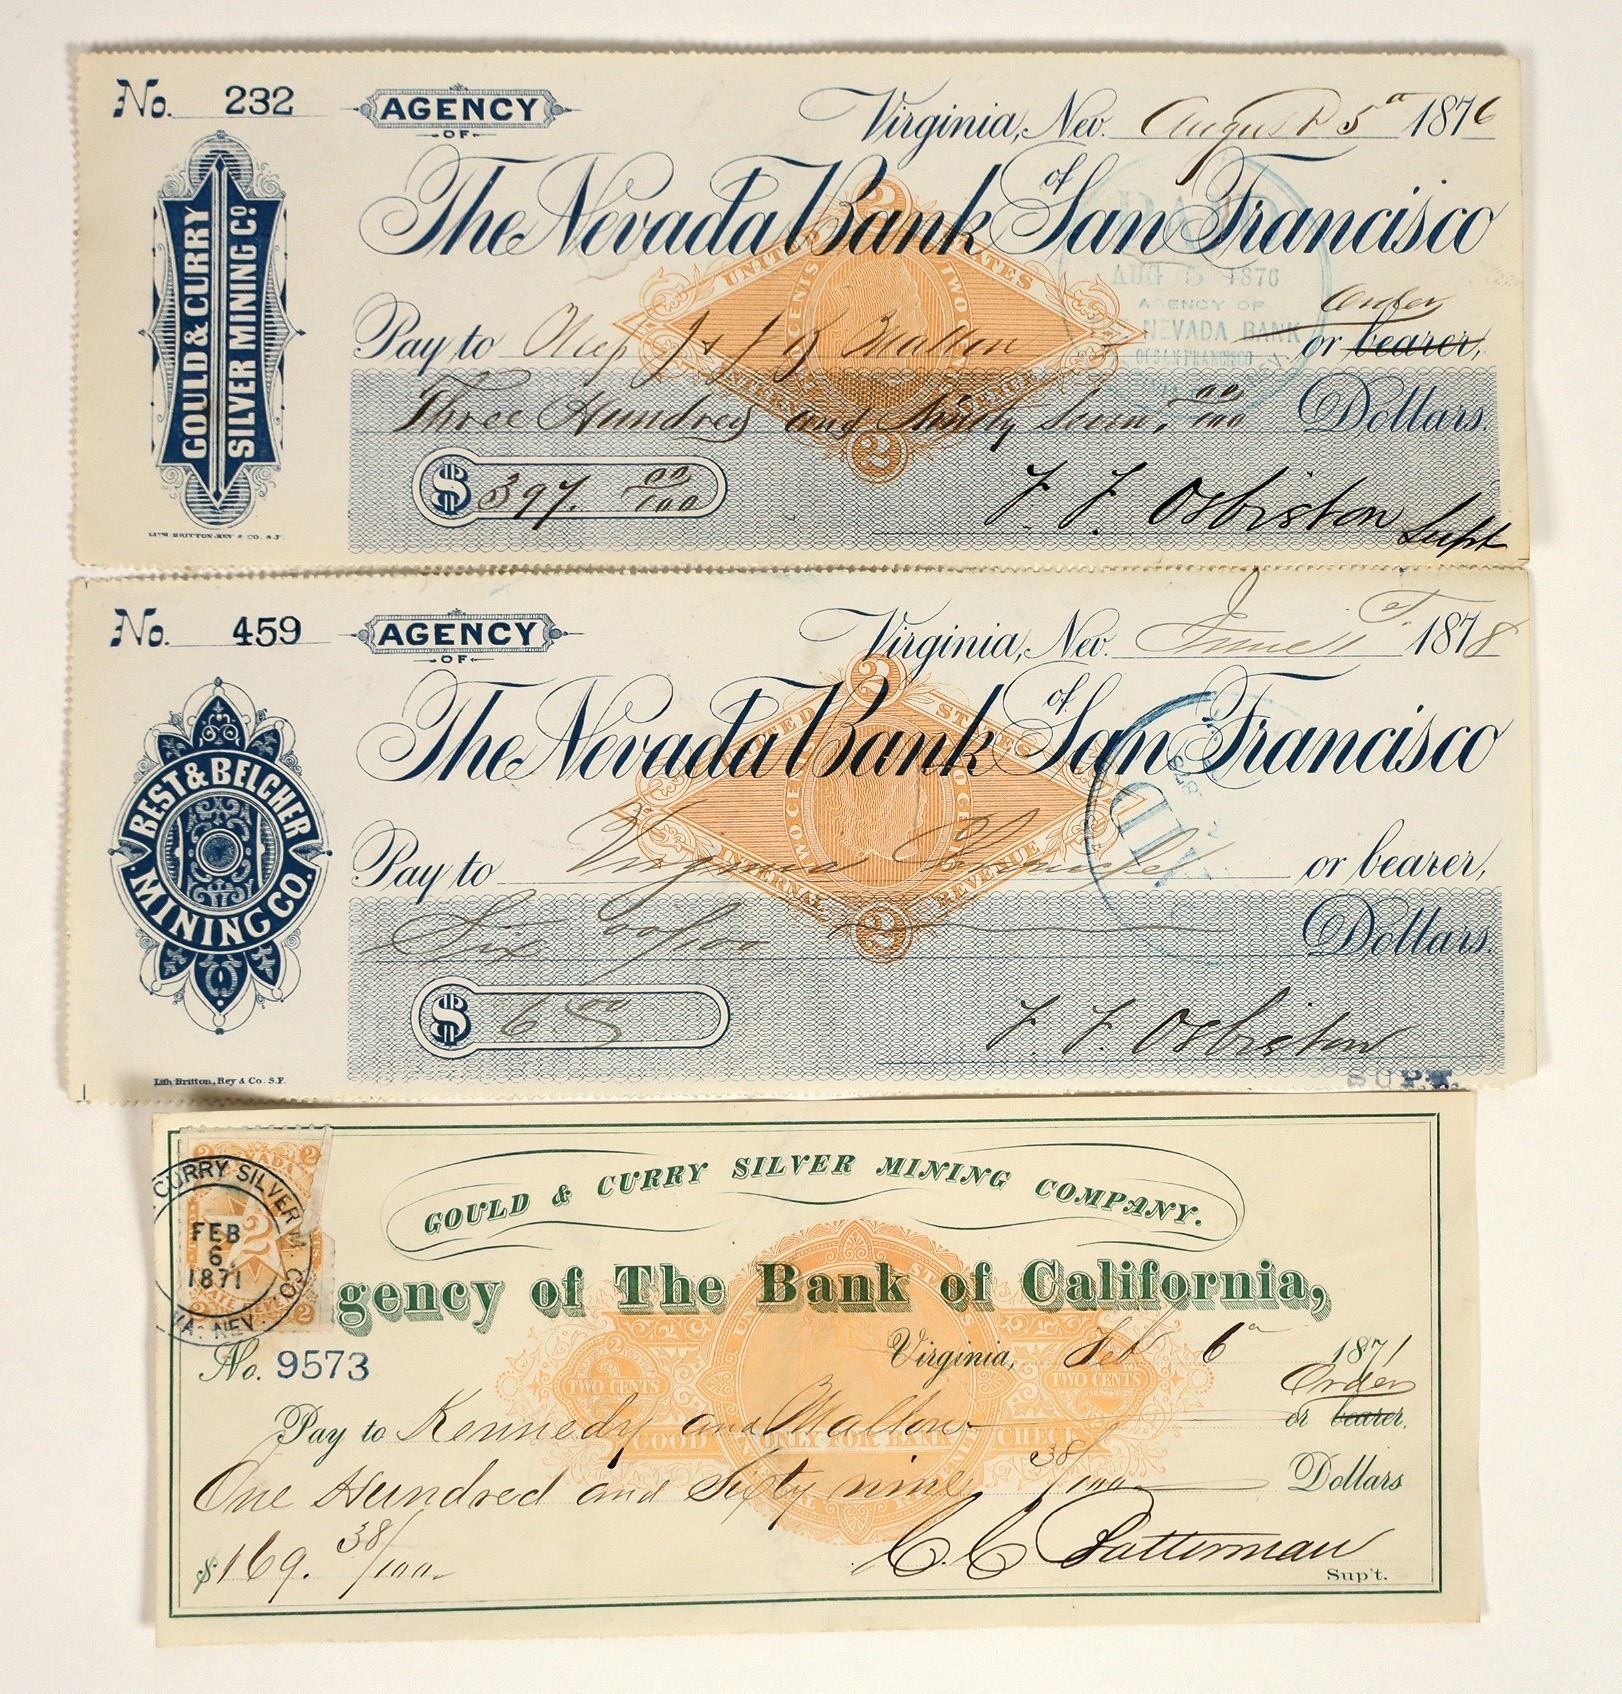 No. 232
AGENCY
OF
Virginia, Nev. August 5th 1876
The Nevada Bank of San Francisco
GOULD & CURRY
SILVER MINING Co.
UNITED STATES
TWO CENTS
INTERNAL REVENUE
2
2
AUG 5 1876
AGENCY OF
NEVADA BANK
OF SAN FRANCISCO
Order
Pay to J & J B Mallon or bearer,
Three Hundred and Ninety Seven, 00/100 Dollars.
$ 397. 00/100
F. F. Osbiston Supt
LITH. BRITTON, REY & CO. S.F.
No. 459
AGENCY
OF
Virginia, Nev. June 1st 1878
The Nevada Bank of San Francisco
BEST & BELCHER
MINING CO.
UNITED STATES
TWO CENTS
INTERNAL REVENUE
2
2
Pay to Virginia or bearer,
Six 00/100 Dollars.
$ 6.00
F. F. Osbiston
SUPT.
Lith. Britton, Rey & Co. S.F.
GOULD & CURRY SILVER MINING COMPANY.
CURRY SILVER M. CO.
FEB
6
1871
VA. NEV.
gency of The Bank of California,
Virginia, Feb 6th 1871
No. 9573
TWO CENTS
TWO CENTS
Order
Pay to Kennedy and Mallon or bearer,
GOOD ONLY FOR BANK CHECK
One Hundred and Sixty nine 38/100 Dollars
$169. 38/100
C. C. Batterman
Sup't.